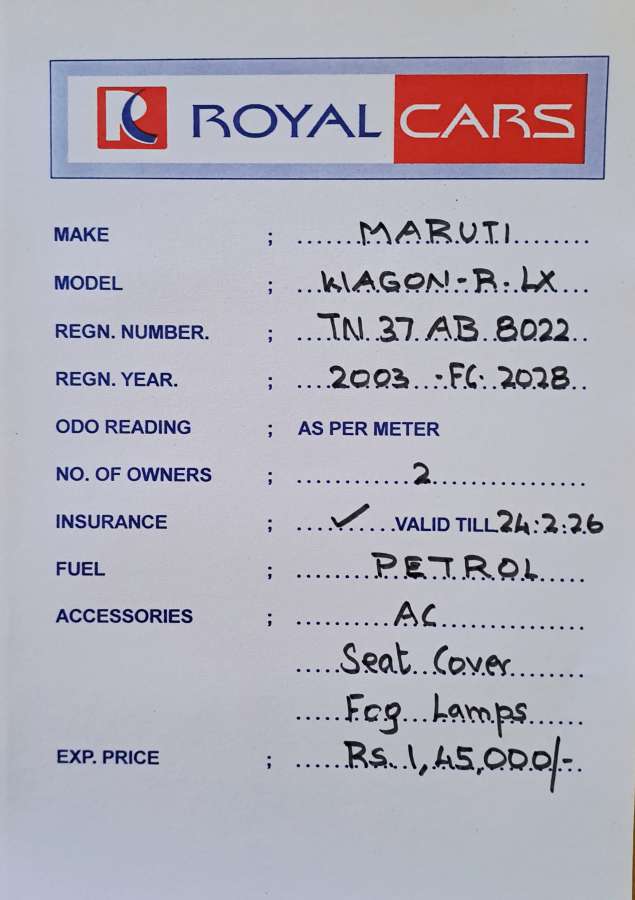 R ROYAL CARS
MAKE ; MARUTI
MODEL ; WAGON-R. LX
REGN. NUMBER. ; TN 37 AB 8022
REGN. YEAR. ; 2003 - FC. 2028
ODO READING ; AS PER METER
NO. OF OWNERS ; 2
INSURANCE ; ✓ VALID TILL 24:2:26
FUEL ; PETROL
ACCESSORIES ; AC
Seat Cover
Fog Lamps
EXP. PRICE ; Rs. 1,45,000/-